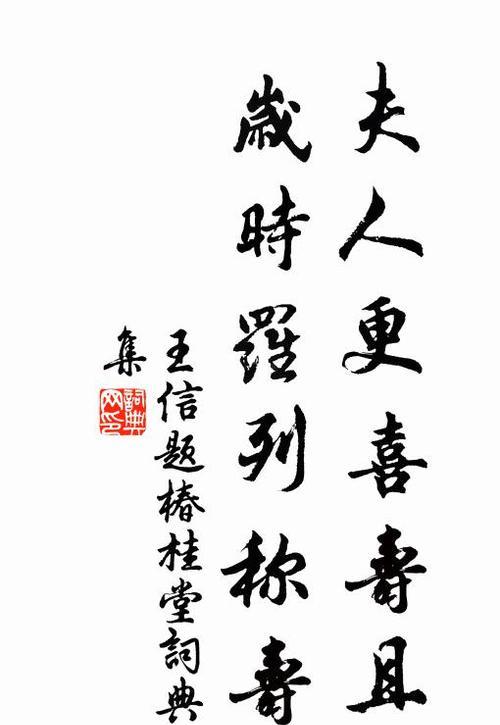 夫人更喜壽且
歲時羅列称壽
王信題椿桂堂詞典
集
詞典网印